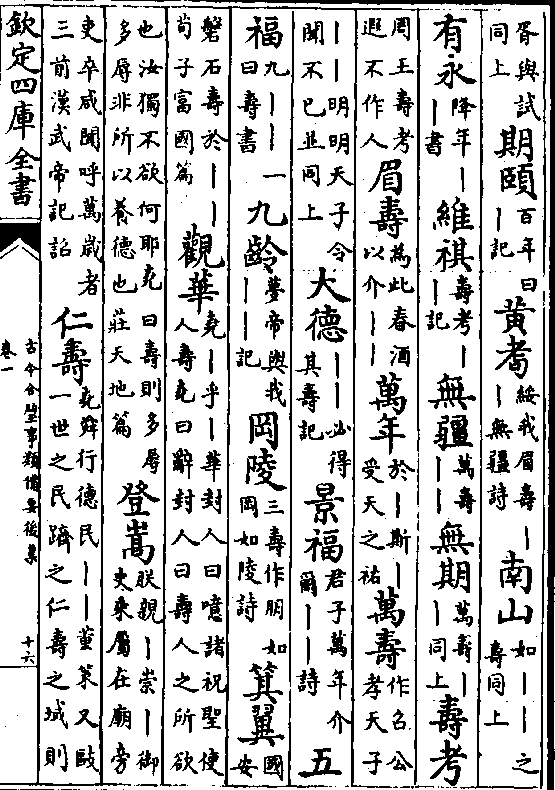 胥與試同上 期頤 百年曰｜記 黃耇 綏我眉壽｜｜無疆詩 南山 如｜｜之壽同上
有永 降年｜｜書 維祺 壽考｜｜記 無疆 萬壽｜｜ 無期 萬壽｜｜同上 壽考
周王壽考遐不作人 眉壽 為此春酒以介｜｜ 萬年 於｜斯｜受天之祜 萬壽 作召公考天子
｜｜明明天子令聞不已並同上 大德 ｜｜必得其壽記 景福 君子萬年介爾｜｜詩 五
福 九｜｜一曰壽書 九齡 夢帝與我｜｜記 岡陵 三壽作朋如岡如陵詩 箕翼 國安
磐石壽於｜｜荀子富國篇 觀華 堯｜乎｜華封人曰噫諸祝聖使人壽堯曰辭封人曰壽人之所欲
也汝獨不欲何耶堯曰壽則多辱多辱非所以養德也莊天地篇 登嵩 朕親｜崇｜御史乘屬在廟旁
吏卒咸聞呼萬歲者三前漢武帝記詔 仁壽 堯舜行德民｜｜董策又敺一世之民躋之仁壽之域則
欽定四庫全書
古今合璧事類備要後集
卷一
十六